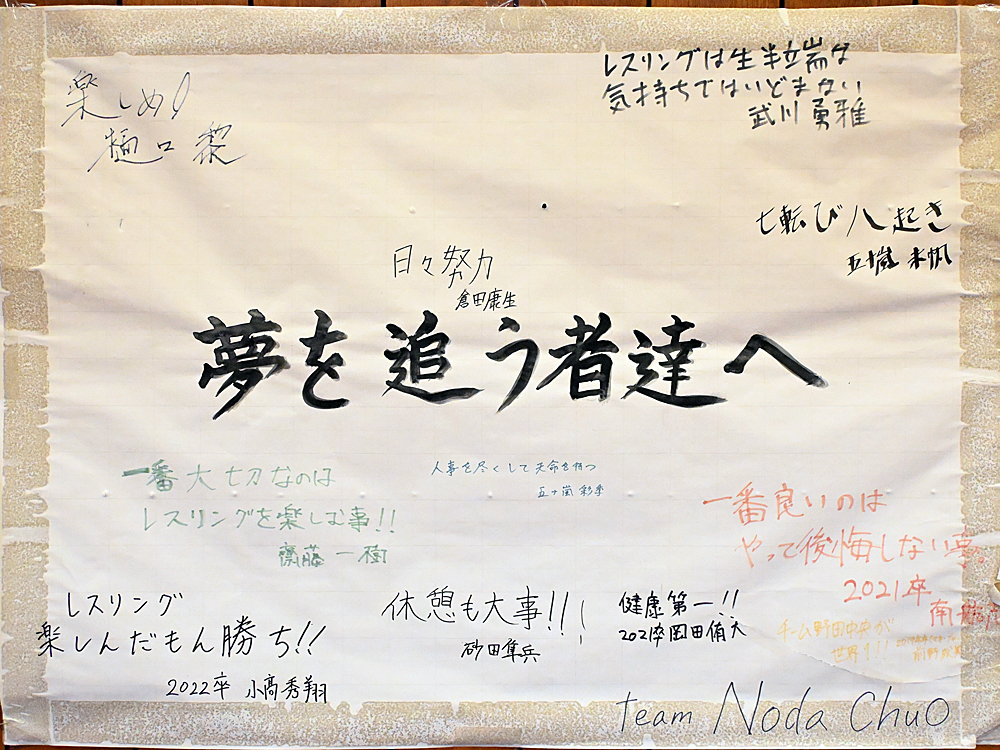 楽しめ!
樋口 黎
レスリングは生半端な
気持ちではいどまない
武川 勇雅
七転び八起き
五十嵐 未帆
日々努力
倉田康生
夢を追う者達へ
一番大切なのは
レスリングを楽しむ事!!
齋藤 一樹
人事を尽くして天命を待つ
五十嵐 彩季
一番良いのは
やって後悔しない事。
2021卒
南
レスリング
楽しんだもん勝ち!!
2022卒 小高秀翔
休憩も大事!!!
砂田隼兵
健康第一!!
202卒 岡田侑大
チーム野田中央が
世界1!!
team Noda Chuo